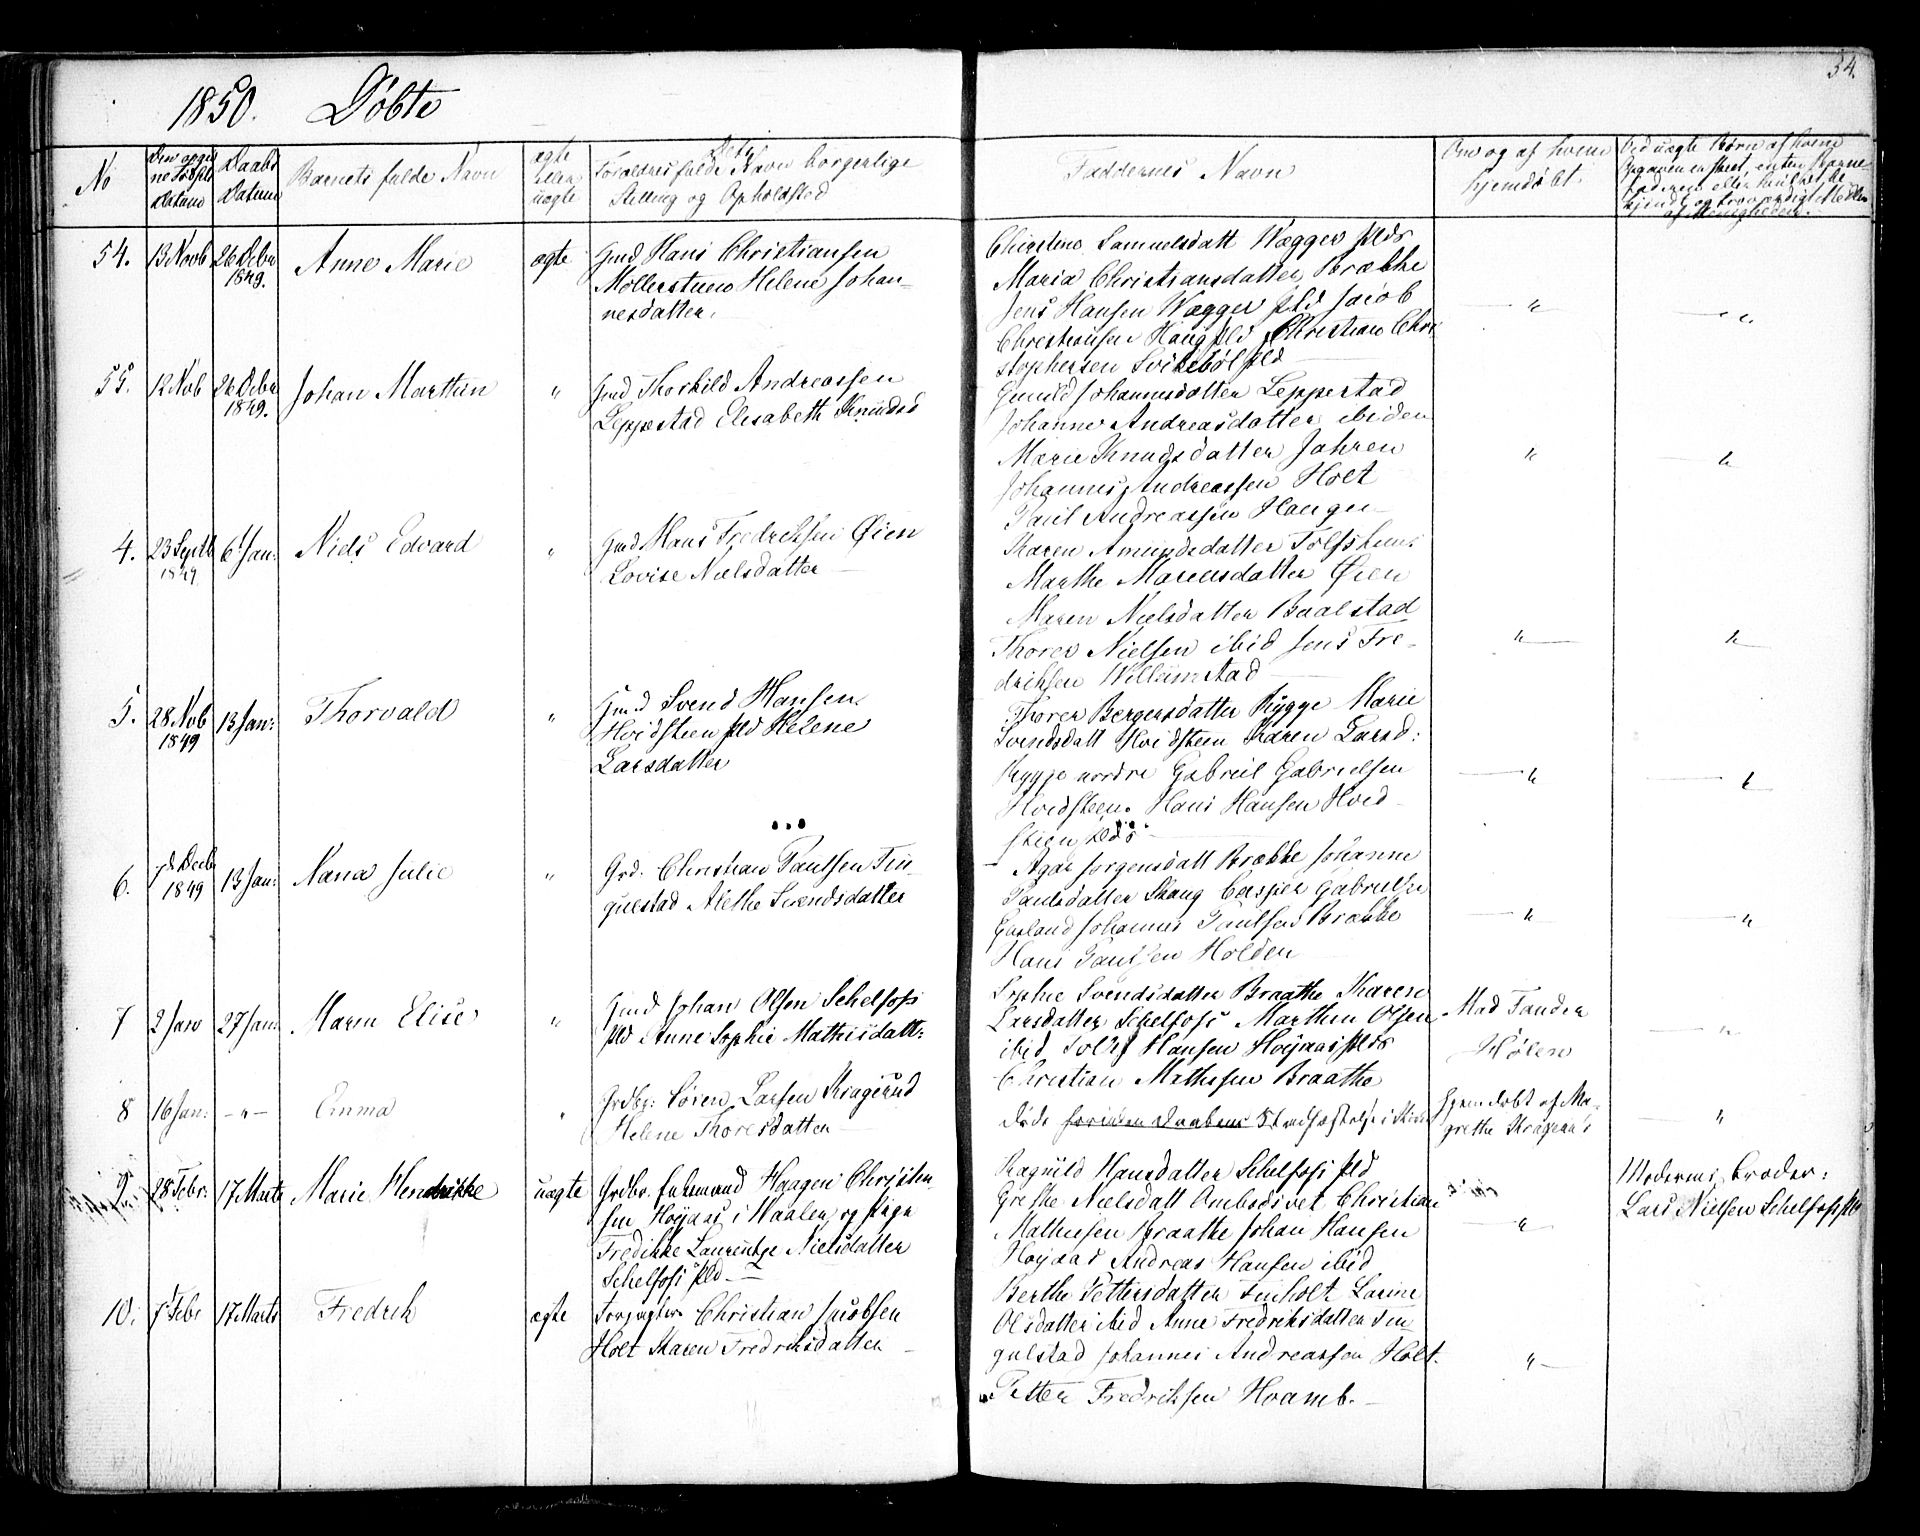 54.
1850. Döbte
No
Den opgiv
ne Födsels
Datum
Daabs
Datum
Barnets fulde Navn
ægte
eller
uægte
Dets
Forældres fulde Navn borgerlige
Stilling og Opholdsted
Faddernes Navn
Om og af hvem
hjemdöbt.
Ved uægte Börn af hvem
Opgaven er skeet, enten Barne
faderen eller hvilket be
kjendt og troværdigt Medlem
af Menigheden.
54.
13 Novb
26 Decbr
1849.
Anne Marie
ægte
Gmd Hans Christiansen
Möllerstuen Helene Johan-
nesdatter.
Christine Samuelsdatt Vægger plds
Maria Christiansdatter Brække
Jens Hansen Vægger pld Jacob
Christiansen Haug pld Christian Chri
stophersen Svikeböl pld
55.
12 Nob
26 Decbr
1849.
Johan Marthin
"
Gmd Thorkild Andreassen
Leppestad Elisabeth Knudsd
Gunild Johannesdatter Leppestad
Johanne Andreasdatter ibiden
Marie Knudsdatter Jahren
Johannes Andreassen Holt
Paul Andreassen Haugen
4.
23 Septb
1849
6 Jan:
Niels Edvard
"
Gmd Hans Fredriksen Øien
Lovise Nielsdatter
Karen Amundsdatter Tolfshuus
Marthe Mariusdatter Øien
Maren Nielsdatter Baalstad
Thorer Nielsen ibid Jens Fre-
driksen Willumstad
5.
28 Nob
1849
13 Jan:
Thorvald
"
Gmd Svend Hansen
Hvidsteen pld Helene
Larsdatter
Thoren Bergersdatter Rygge Marie
Svendsdatt Hvidsteen Karen Larsd:
Rygge nordre Gabriel Gabrielsen
Hvidsteen. Hans Hansen Hvid-
steen plds
6.
7 Decb
1849
13 Jan:
Nana Julie
"
Grd. Christian Paulsen Tin-
gulstad Alethe Svendsdatter
Agar Jorgensdatt Brække Johanne
Paulsdatter Skaug Casper Gabrielsen
Garland Johannes Paulsen Brække
Hans Paulsen Holden
7
2 Jan
27 Jan:
Maren Elise
"
Gmd Johan Olsen Schelfoss
pld Anne Sophie Mathisdatt:
Sophie Svendsdatter Braathe Karen
Larsdatter Schelfoss Marthin Olsen
ibid Tolf Hansen Höyaas plds
Christian Mathisen Braathe
Mad Tander
Hölen
8
16 Jan:
- " -
Emma
"
Grdbr: Sören Larsen Kragerud
Helene Thoresdatter
döde förinden Daabens Stadfæstelse i Kirken
Hjemdöbt af Ma-
grethe Kragerud
9.
28 Febr:
17 Marts
Marie Hendrikke
uægte
Grdbr. Enkemand Haagen Christen-
sen Höyaas i Waaler og Pige
Fredikke Laurentze Nielsdatter
Schelfoss pld
Ragnild Hansdatter Schelfoss pld
Grethe Nielsdatt Christian
Mathiesen Braathe Johan Hansen
Höyaas Andreas Hansen ibid
Moderens broder:
Lars Nielsen Schelfoss pld
10.
7 Febr
17 Marts
Fredrik
ægte
Forpagter Christian Jacobsen
Holt Karen Fredriksdatter
Berthe Pettersdatter Finholt Larine
Olsdatter ibid Anne Fredriksdatter Tin
gulstad Johannes Andreassen Holt.
Petter Fredriksen Hvamb.